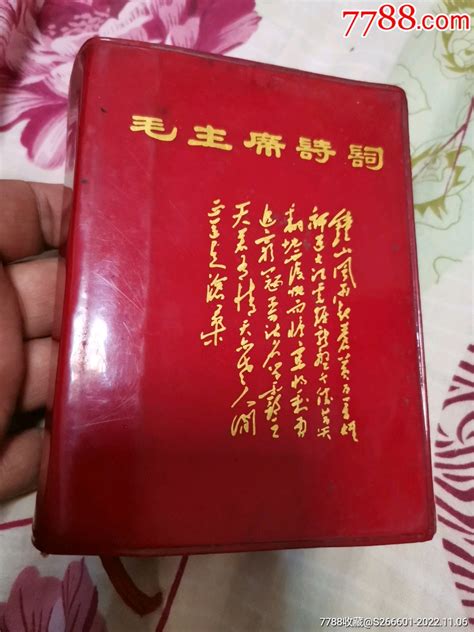 7788.com
毛主席詩詞
鐘山風雨起蒼黃百万雄
師過大江虎踞龍盤今勝昔天
翻地覆慨而慷宜將剩勇
追窮寇不可沽名學霸王
天若有情天亦老人間
正道是滄桑
7788收藏@S266601-2022.11.06